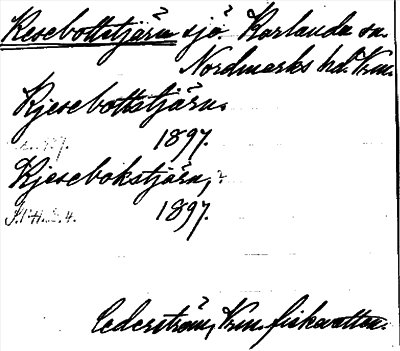 Kesebottstjärn sjö Karlanda sn.
Nordmarks hd. Vrm.
Kjesebottstjärn.
1897.
Kjesebokstjärn,
1897.
Cederström, Vrm. fiskevatten.